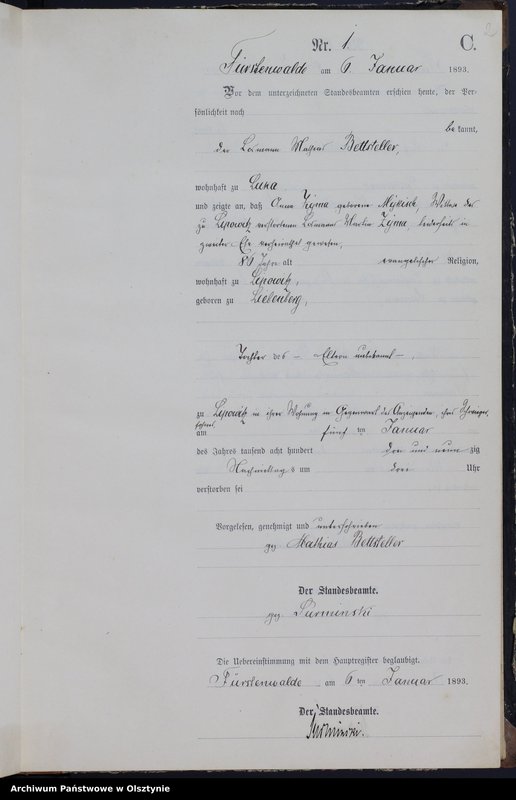 2
Nr. 1 C.
Fürstenwalde am 6. Januar 1893.
Vor dem unterzeichneten Standesbeamten erschien heute, der Per-
sönlichkeit nach
be kannt,
der Losmann Mathias Bettsteller,
wohnhaft zu Luka
und zeigte an, daß Anna Zigma geborene, Wittwe des
zu Lipowitz verstorbenen Losmann Martin Zigma, beiderseits in
zweiter Ehe verheirathet gewesen,
80 Jahre alt evangelischer Religion,
wohnhaft zu Lipowitz,
geboren zu Liebenberg,
Tochter des — Eltern unbekannt —,
zu Lipowitz in ihrer Wohnung in Gegenwart des Anzeigenden, ihres Schwieger
sohnes
am fünf ten Januar
des Jahres tausend acht hundert drei und neun zig
Nachmittag s um drei Uhr
verstorben sei
Vorgelesen, genehmigt und unterschrieben
gez. Mathias Bettsteller
Der Standesbeamte.
gez. Surminski
Die Uebereinstimmung mit dem Hauptregister beglaubigt.
Fürstenwalde am 6 ten Januar 1893.
Der Standesbeamte.
Surminski.
Archiwum Państwowe w Olsztynie